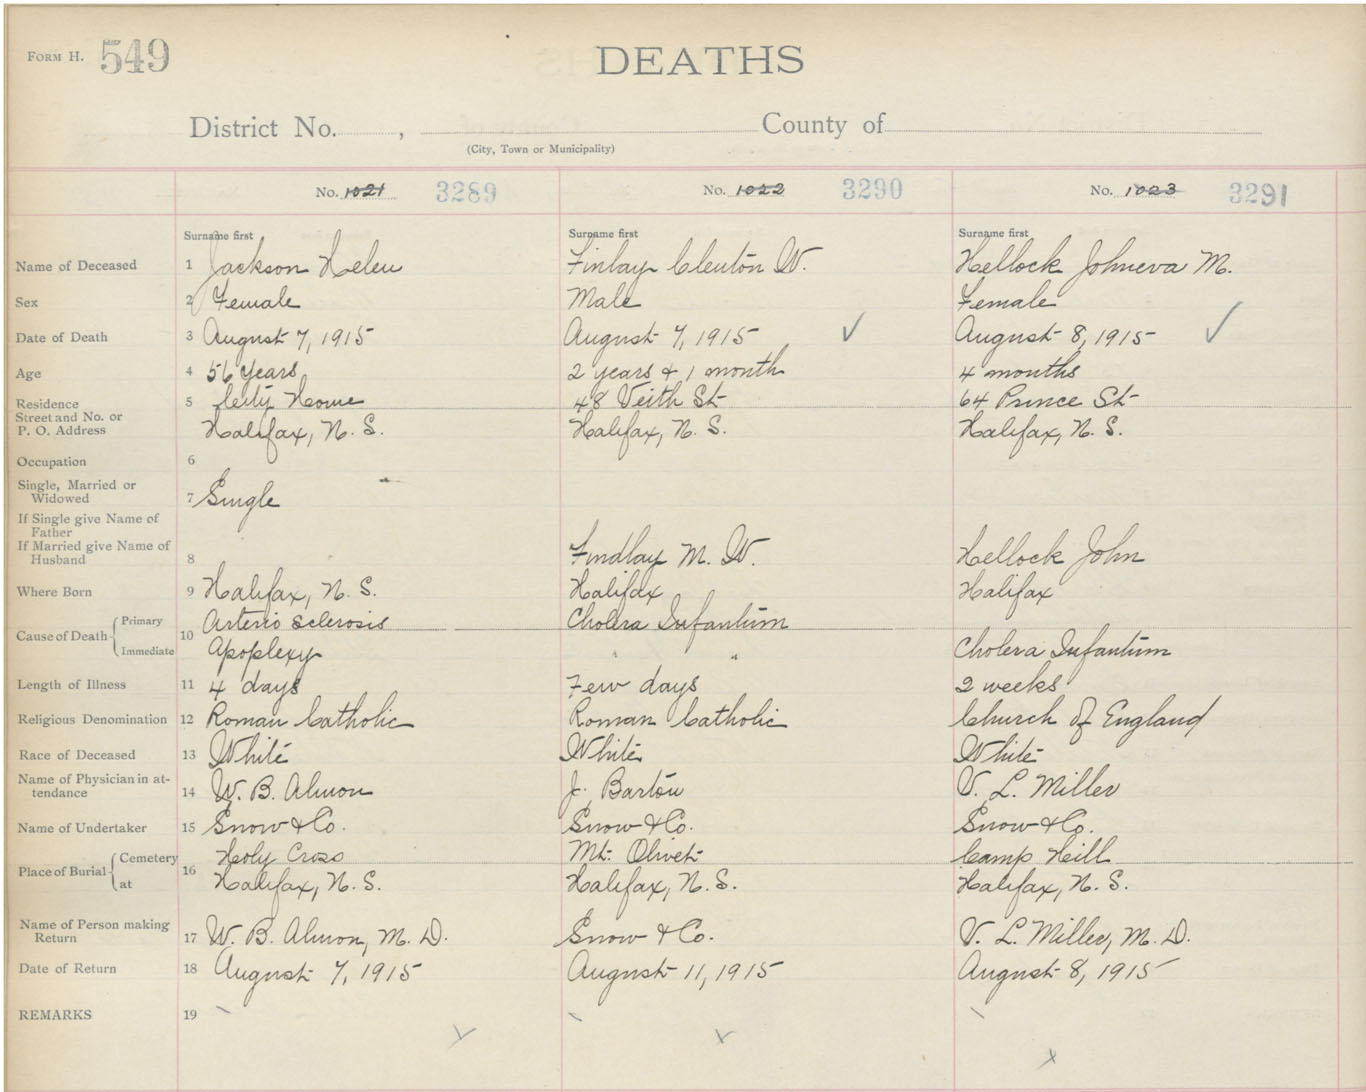 FORM H. 549
DEATHS
District No. , County of
(City, Town or Municipality)
No. 1021 3289 No. 1022 3290 No. 1023 3291
Surname first Surname first Surname first
Name of Deceased 1 Jackson Helen Finlay Clenton W. Hellock Johneva M.
Sex 2 Female Male Female
Date of Death 3 August 7, 1915 August 7, 1915 ✓ August 8, 1915 ✓
Age 4 56 years 2 years & 1 month 4 months
Residence 5 City Home 48 Veith St 64 Prince St
Street and No. or
P. O. Address Halifax, N. S. Halifax, N. S. Halifax, N. S.
Occupation 6
Single, Married or
Widowed 7 Single
If Single give Name of
Father
If Married give Name of
Husband 8 Findlay M. W. Hellock John
Where Born 9 Halifax, N. S. Halifax Halifax
Cause of Death Primary 10 Arterio Sclerosis Cholera Infantum
Immediate Apoplexy " " Cholera Infantum
Length of Illness 11 4 days Few days 2 weeks
Religious Denomination 12 Roman Catholic Roman Catholic Church of England
Race of Deceased 13 White White White
Name of Physician in at-
tendance 14 W. B. Almon J. Barton V. L. Miller
Name of Undertaker 15 Snow & Co. Snow & Co. Snow & Co.
Place of Burial Cemetery 16 Holy Cross Mt. Olivet Camp Hill
at Halifax, N. S. Halifax, N. S. Halifax, N. S.
Name of Person making
Return 17 W. B. Almon, M. D. Snow & Co. V. L. Miller, M. D.
Date of Return 18 August 7, 1915 August 11, 1915 August 8, 1915
REMARKS 19